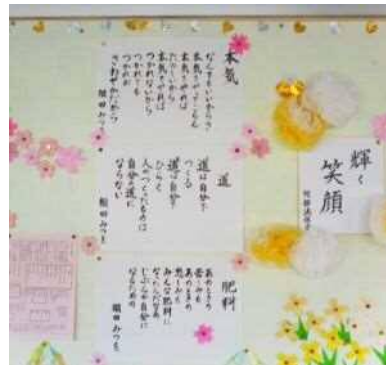 本気
なんでもいいからさ
本気でやってごらん
本気でやれば
たのしいから
本気でやれば
つかれないから
つかれても
つかれが
さわやかだから
相田みつを
道
道は自分で
つくる
道は自分で
ひらく
人のつくったものは
自分の道に
ならない
相田みつを
肥料
あのときの
苦しみも
あのときの
悲しみも
みんな肥料に
なったんだなあ
じぶんが自分に
なるための
相田みつを
輝く
笑顔